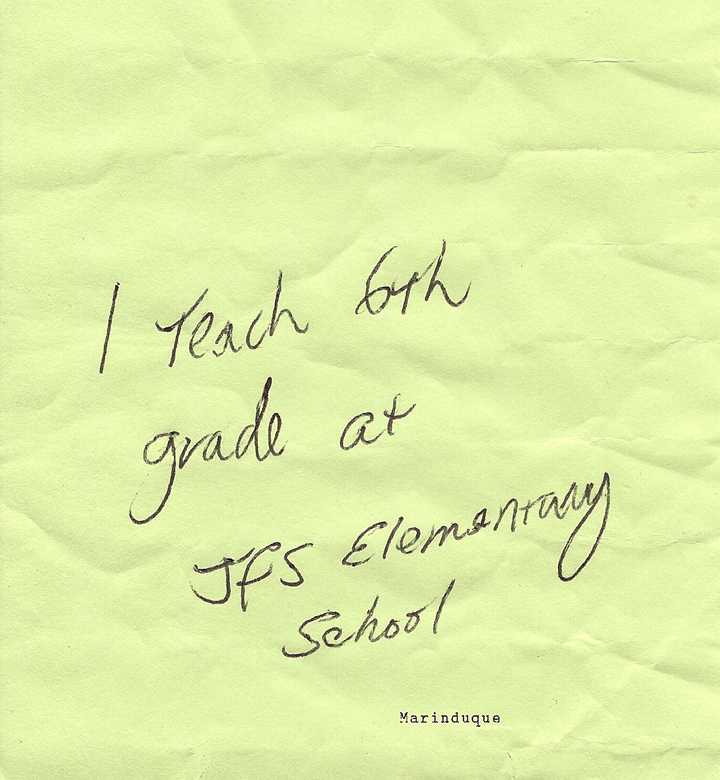 I Teach 6th
grade at
JFS Elementary
School
Marinduque